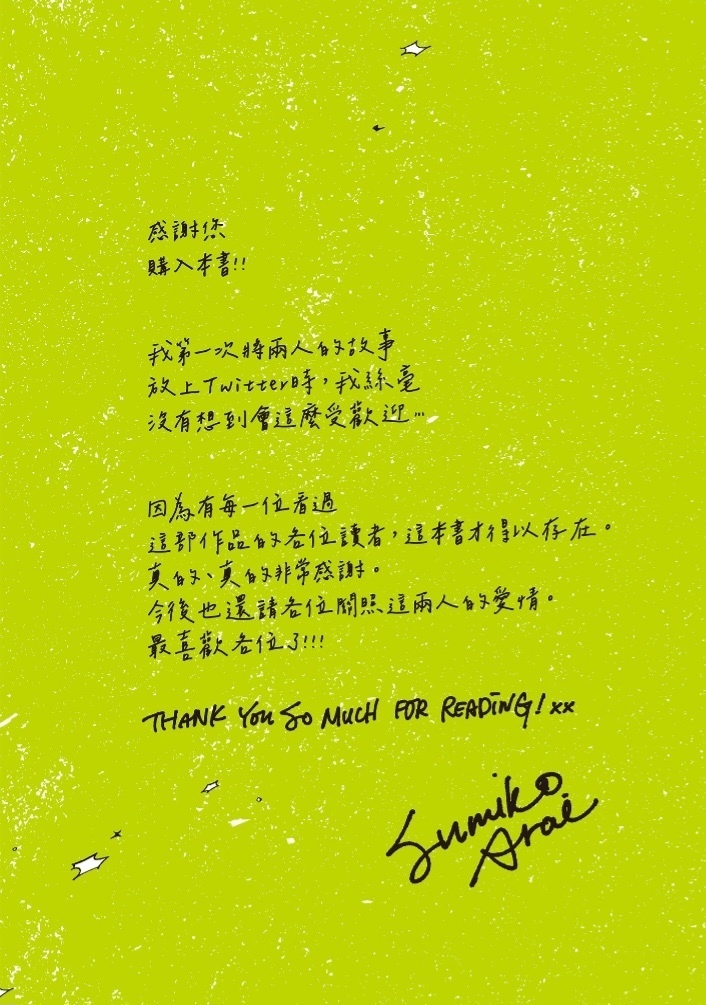 感謝您
購入本書!!
我第一次將兩人的故事
放上Twitter時，我絲毫
沒有想到會這麼受歡迎…
因為有每一位看過
這部作品的各位讀者，這本書才得以存在。
真的、真的非常感謝。
今後也還請各位關照這兩人的愛情。
最喜歡各位了!!!
THANK YOU SO MUCH FOR READING! xx
Sumiko
Arai